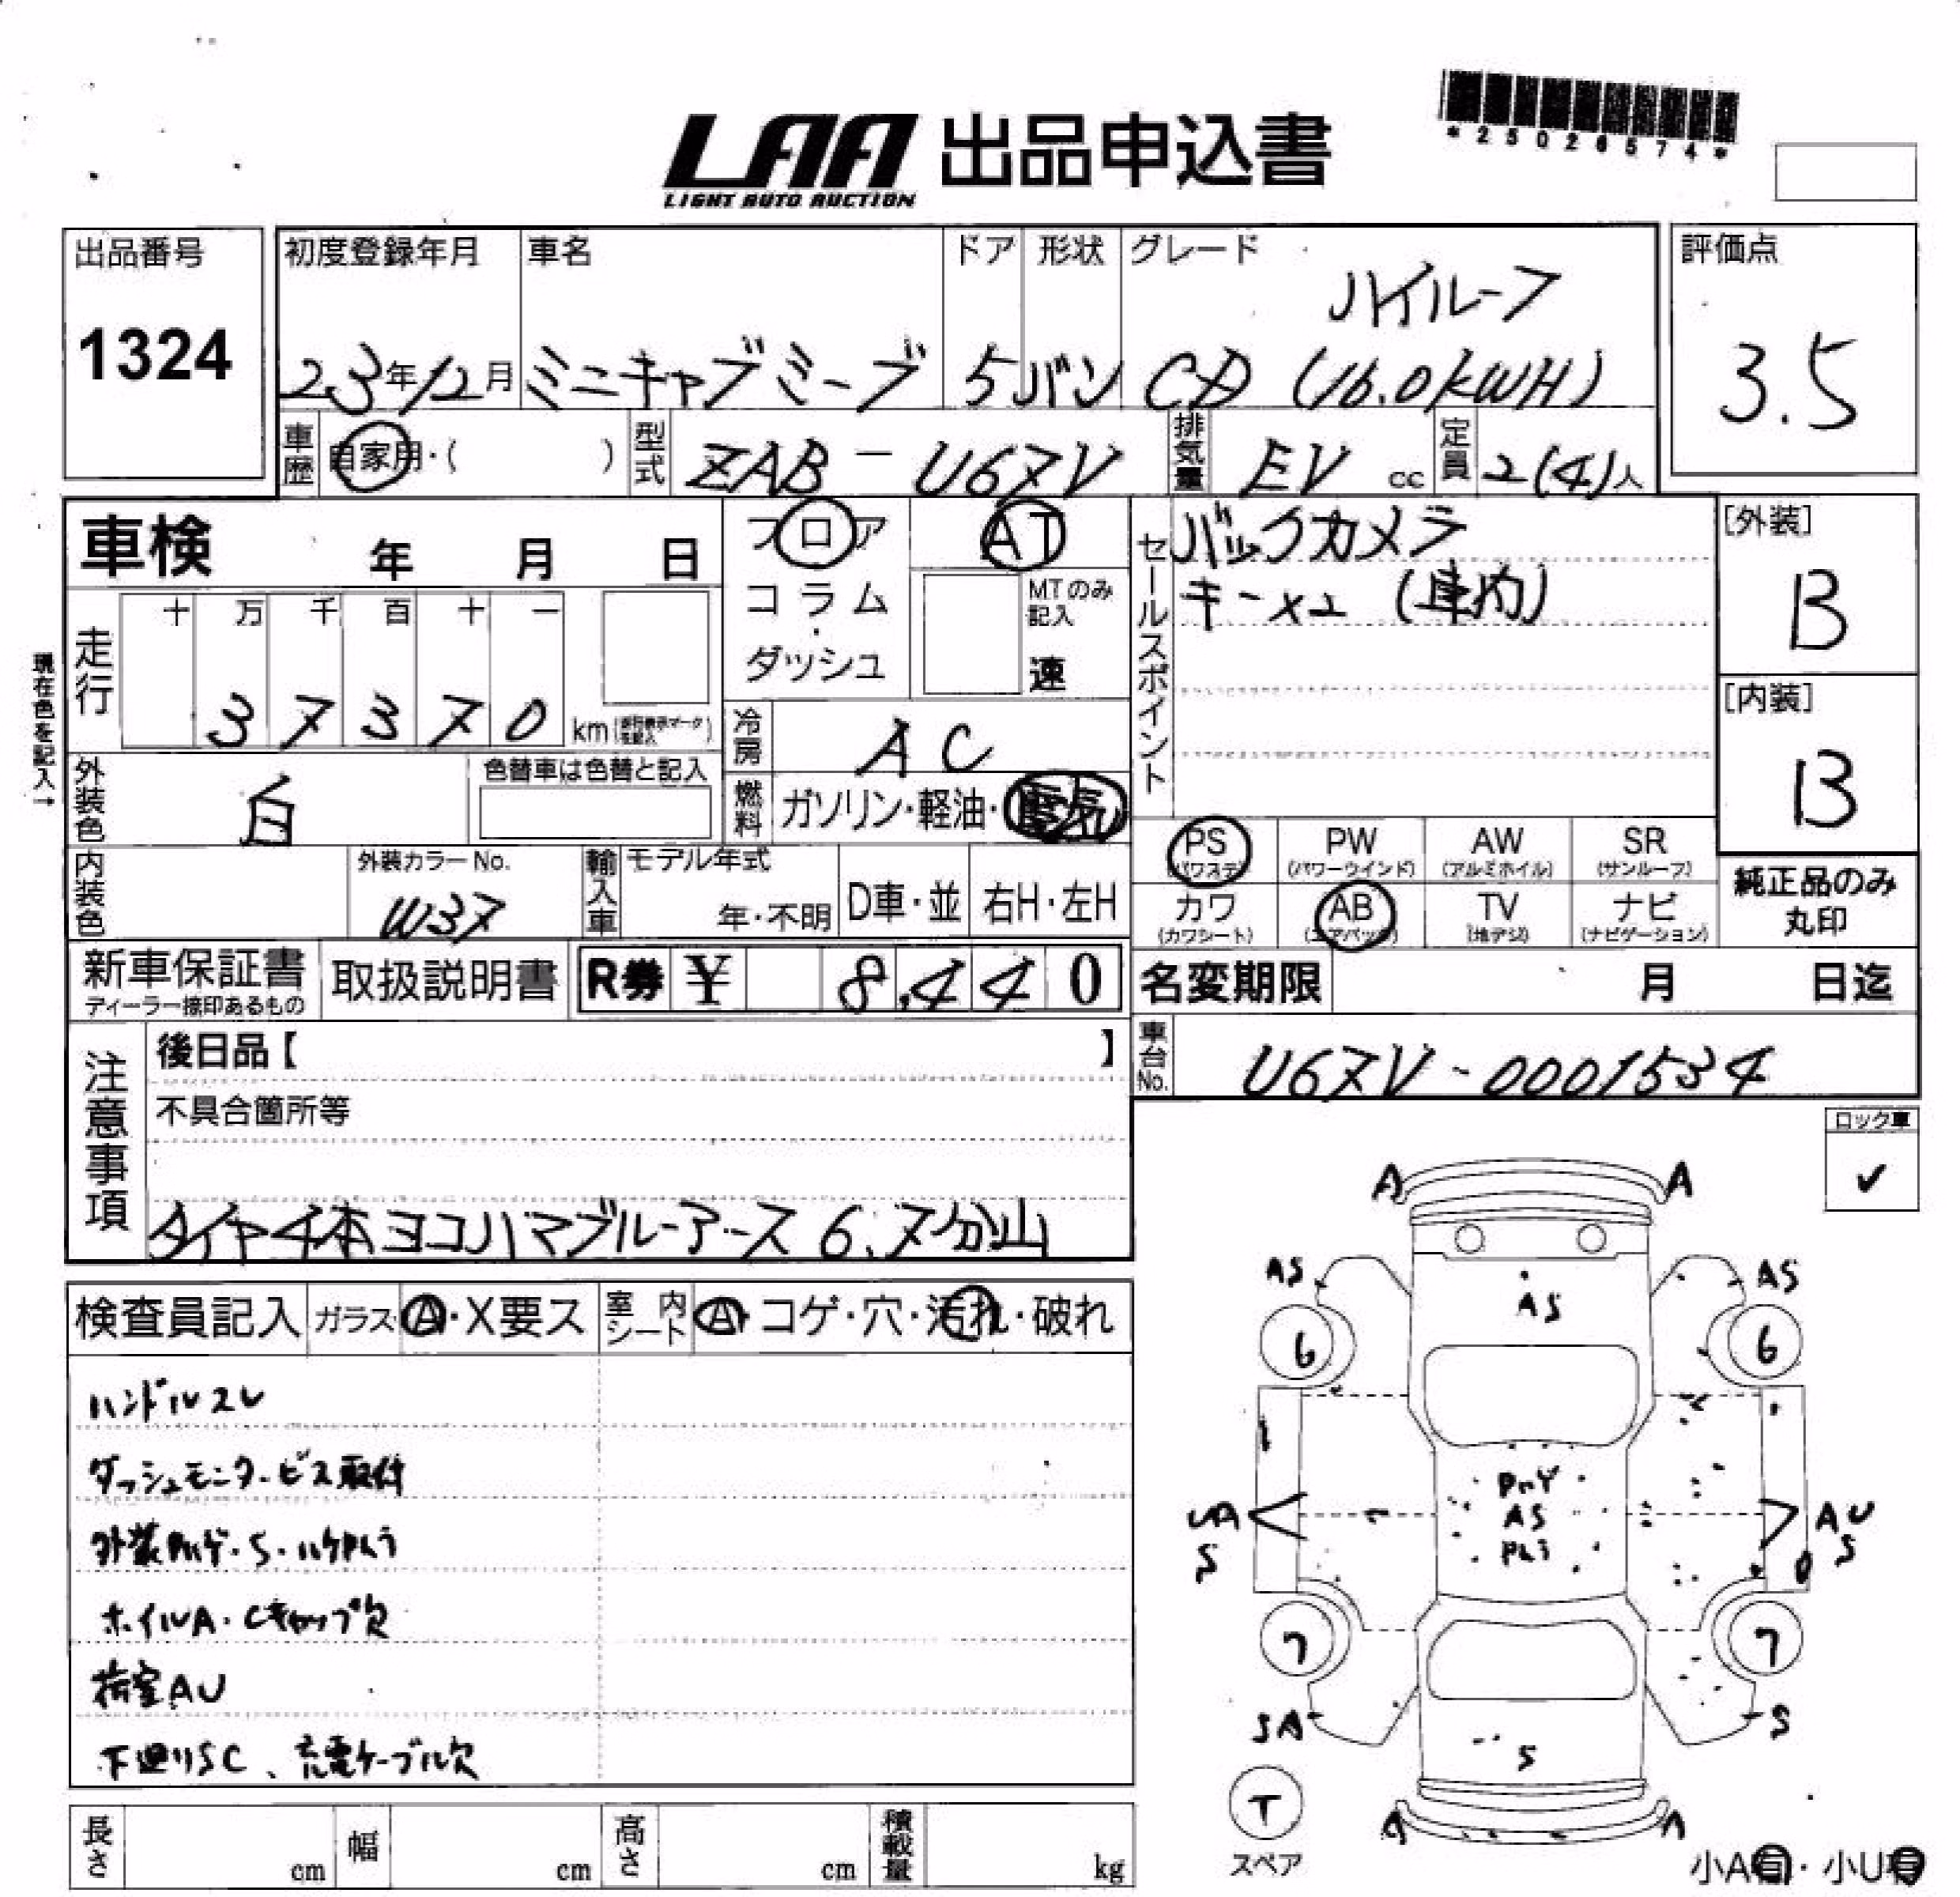 *25026574*
LAA 出品申込書
LIGHT AUTO AUCTION
出品番号 初度登録年月 車名 ドア 形状 グレード 評価点
ハイルーフ
1324 23年12月 ミニキャブミーブ 5 バン CD (16.0kWH) 3.5
車歴 自家用・( ) 型式 ZAB-U67V 排気量 EV cc 定員 2(4)人
車検 年 月 日 フロア AT セールスポイント バックカメラ [外装]
コラム・ MTのみ記入 キーx2 (車内) B
ダッシュ 速
走行 十 万 千 百 十 一
37370 km
現在色を記入→
冷房 AC [内装]
外装色 白 色替車は色替と記入 燃料 ガソリン・軽油・電気 B
PS PW AW SR
(パワステ) (パワーウインド) (アルミホイル) (サンルーフ)
内装色 外装カラーNo. W37 輸入車 モデル年式 年・不明 D車・並 右H・左H
カワ AB TV ナビ 純正品のみ
(カワシート) (エアバッグ) (地デジ) (ナビゲーション) 丸印
新車保証書 取扱説明書 R券 ¥ 8,440 名変期限 月 日迄
ディーラー捺印あるもの
注意事項 後日品【 】 車台No. U67V-0001534
不具合箇所等 ロック車
✓
タイヤ4本ヨコハマブルーアース 6.7分山
検査員記入 ガラス A・X要ス 室内シート A・コゲ・穴・汚れ・破れ
ハンドルスレ
ダッシュモニタービス取付
外装
ホイルA・Cキャップ欠
荷室AU
下廻りSC、充電ケーブル欠
A A
AS AS
AS
6 6
AS
S S
7 7
SA S
S
T
スペア
長さ cm 幅 cm 高さ cm 積載量 kg
小A有・小U有